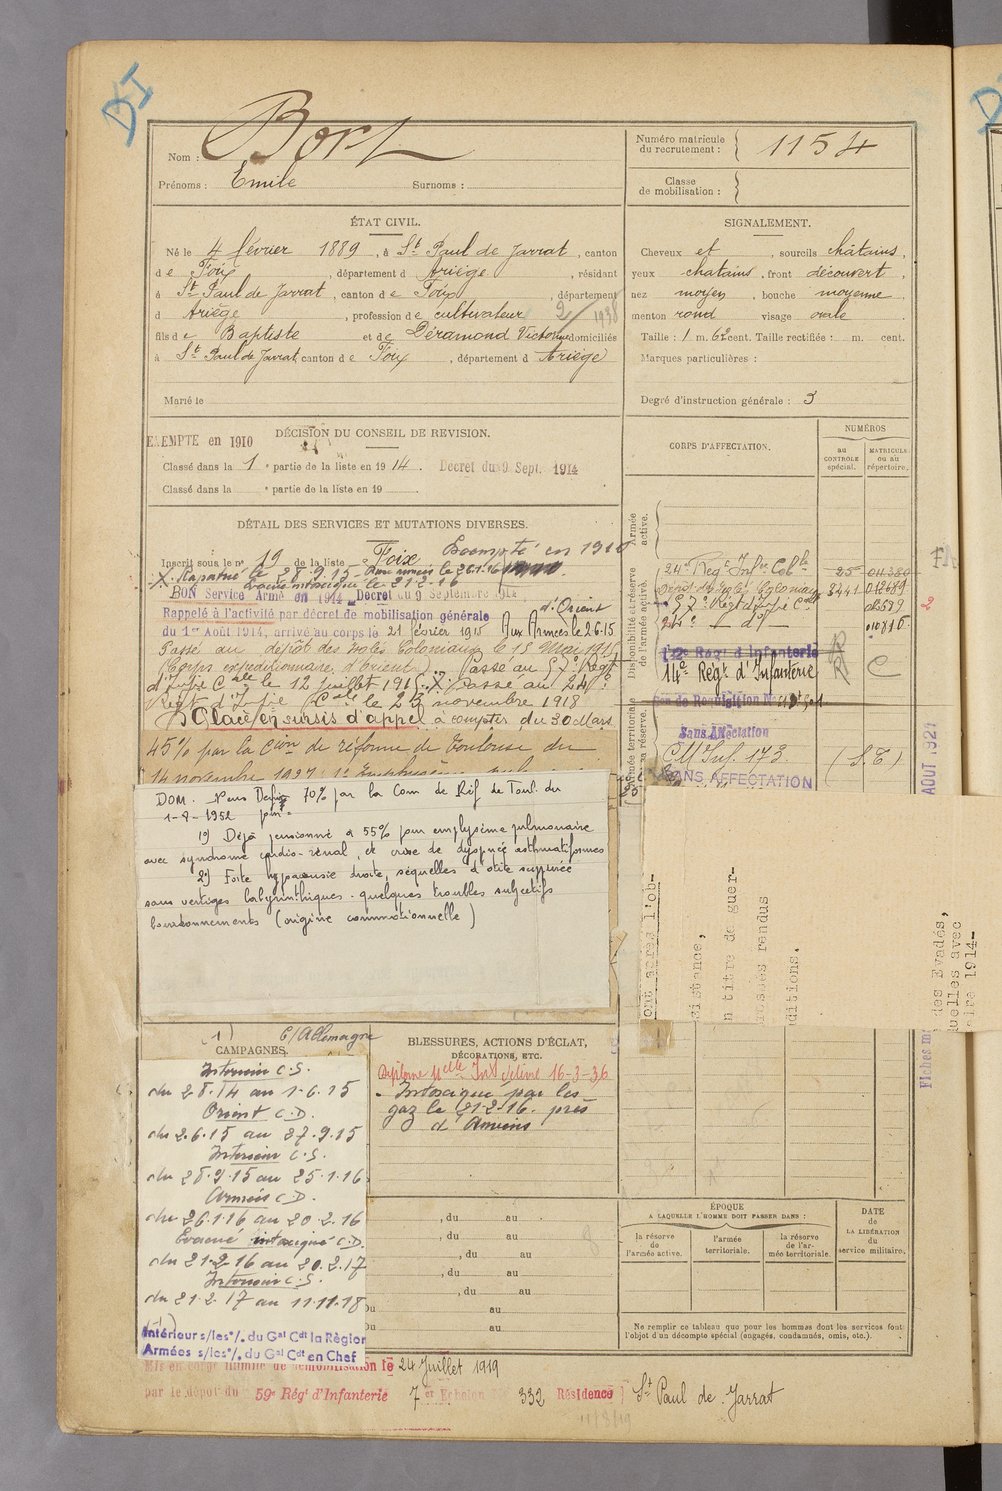 DI
Nom : Bort
Prénoms : Emile Surnoms :
Numéro matricule du recrutement : 1154
Classe de mobilisation :
ÉTAT CIVIL.
Né le 4 février 1889, à St Paul de Jarrat, canton
de Foix, département d Ariège, résidant
à St Paul de Jarrat, canton de Foix, département
d Ariège, profession de cultivateur 2/1938
fils de Baptiste et de Déramond Victorine domiciliés
à St Paul de Jarrat, canton de Foix, département d Ariège
Marié le
SIGNALEMENT.
Cheveux et, sourcils châtains,
yeux chatains, front découvert,
nez moyen, bouche moyenne,
menton rond visage ovale.
Taille : 1 m. 62 cent. Taille rectifiée : m. cent.
Marques particulières :
Degré d'instruction générale : 3
DÉCISION DU CONSEIL DE REVISION.
EXEMPTE en 1910
Classé dans la 1e partie de la liste en 1914. Decret du 9 Sept. 1914
Classé dans la e partie de la liste en 19
DÉTAIL DES SERVICES ET MUTATIONS DIVERSES.
Inscrit sous le no 19 de la liste Foix Exempté en 1910
X. Rapatrié le 28.9.15 - Aux armées le 26.1.16
Evacué intoxiqué le 21.2.16
BON Service Armé en 1914 Decret du 9 Septembre 1914
Rappelé à l'activité par décret de mobilisation générale d'Orient
du 1er Août 1914, arrivé au corps le 21 février 1915 Aux Armées le 2.6.15
Passé au dépôt des isolés Coloniaux le 15 Mai 1915
(Corps expéditionnaire d'Orient) Passé au 57e Régt
d'Infie Cale le 12 juillet 1915. X Passé au 24e
Régt d'Infie Cale le 23 novembre 1918
Placé en sursis d'appel à compter du 30 Mars
45% par la Cion de réforme de Toulouse du
14 novembre 1927 :
DOM. Pens Defin 70% par la Com de Réf de Toul. du
1-8-1952 pour :
1o) Déjà pensionné à 55% pour emphysème pulmonaire
avec syndrome cardio-rénal, et crise de dyspnée asthmatiformes
2o) Forte hypoacousie droite, séquelles d'otite suppurée
sans vertiges labyrinthiques - quelques troubles subjectifs
bourdonnements (origine commotionnelle)
CORPS D'AFFECTATION.
NUMÉROS
AU CONTROLE spécial.
MATRICULE ou au répertoire.
Armée active.
Disponibilité et réserve de l'armée active.
Armée territoriale et sa réserve.
24e Régt Infie Cole 25 011380
Dépôt des Isolés Coloniaux 3441
57e Régt d'Infie Cale
24e do
12e Régt d'Infanterie
14e Régt d'Infanterie C
Sans Affectation
CM Inf. 173 (S.T)
SANS AFFECTATION
AOUT 1927
ont après l'ob-
istance,
n titre de guer-
ditions.
des Evadés,
uelles avec
1914-
(1) C/Allemagne
CAMPAGNES.
Intérieur C.S.
du 2 8.14 au 1-6.15
Orient C.D.
du 2.6.15 au 27.9.15
Intérieur C.S.
du 28.9.15 au 25.1.16
Armées C.D.
du 26.1.16 au 20.2.16
Evacué intoxiqué C.D.
du 21.2.16 au 20.2.17
Intérieur C.S.
du 21.2.17 au 11.11.18
Intérieur s/les o/. du Gal Cdt la Région
Armées s/les o/. du Gal Cdt en Chef
BLESSURES, ACTIONS D'ÉCLAT,
DÉCORATIONS, ETC.
Intoxiqué par les
gaz le 21-2-16. près
d'Amiens
, du au
, du au
, du au
, du au
, du au
Du au
Du au
ÉPOQUE
A LAQUELLE L'HOMME DOIT PASSER DANS :
la réserve de l'armée active.
l'armée territoriale.
la réserve de l'armée territoriale.
DATE de LA LIBÉRATION du service militaire.
Ne remplir ce tableau que pour les hommes dont les services font
l'objet d'un décompte spécial (engagés, condamnés, omis, etc.).
Mis en congé illimité de démobilisation le 24 Juillet 1919
par le dépôt du 59e Régt d'Infanterie 7er Echelon No 332 Résidence St Paul de Jarrat